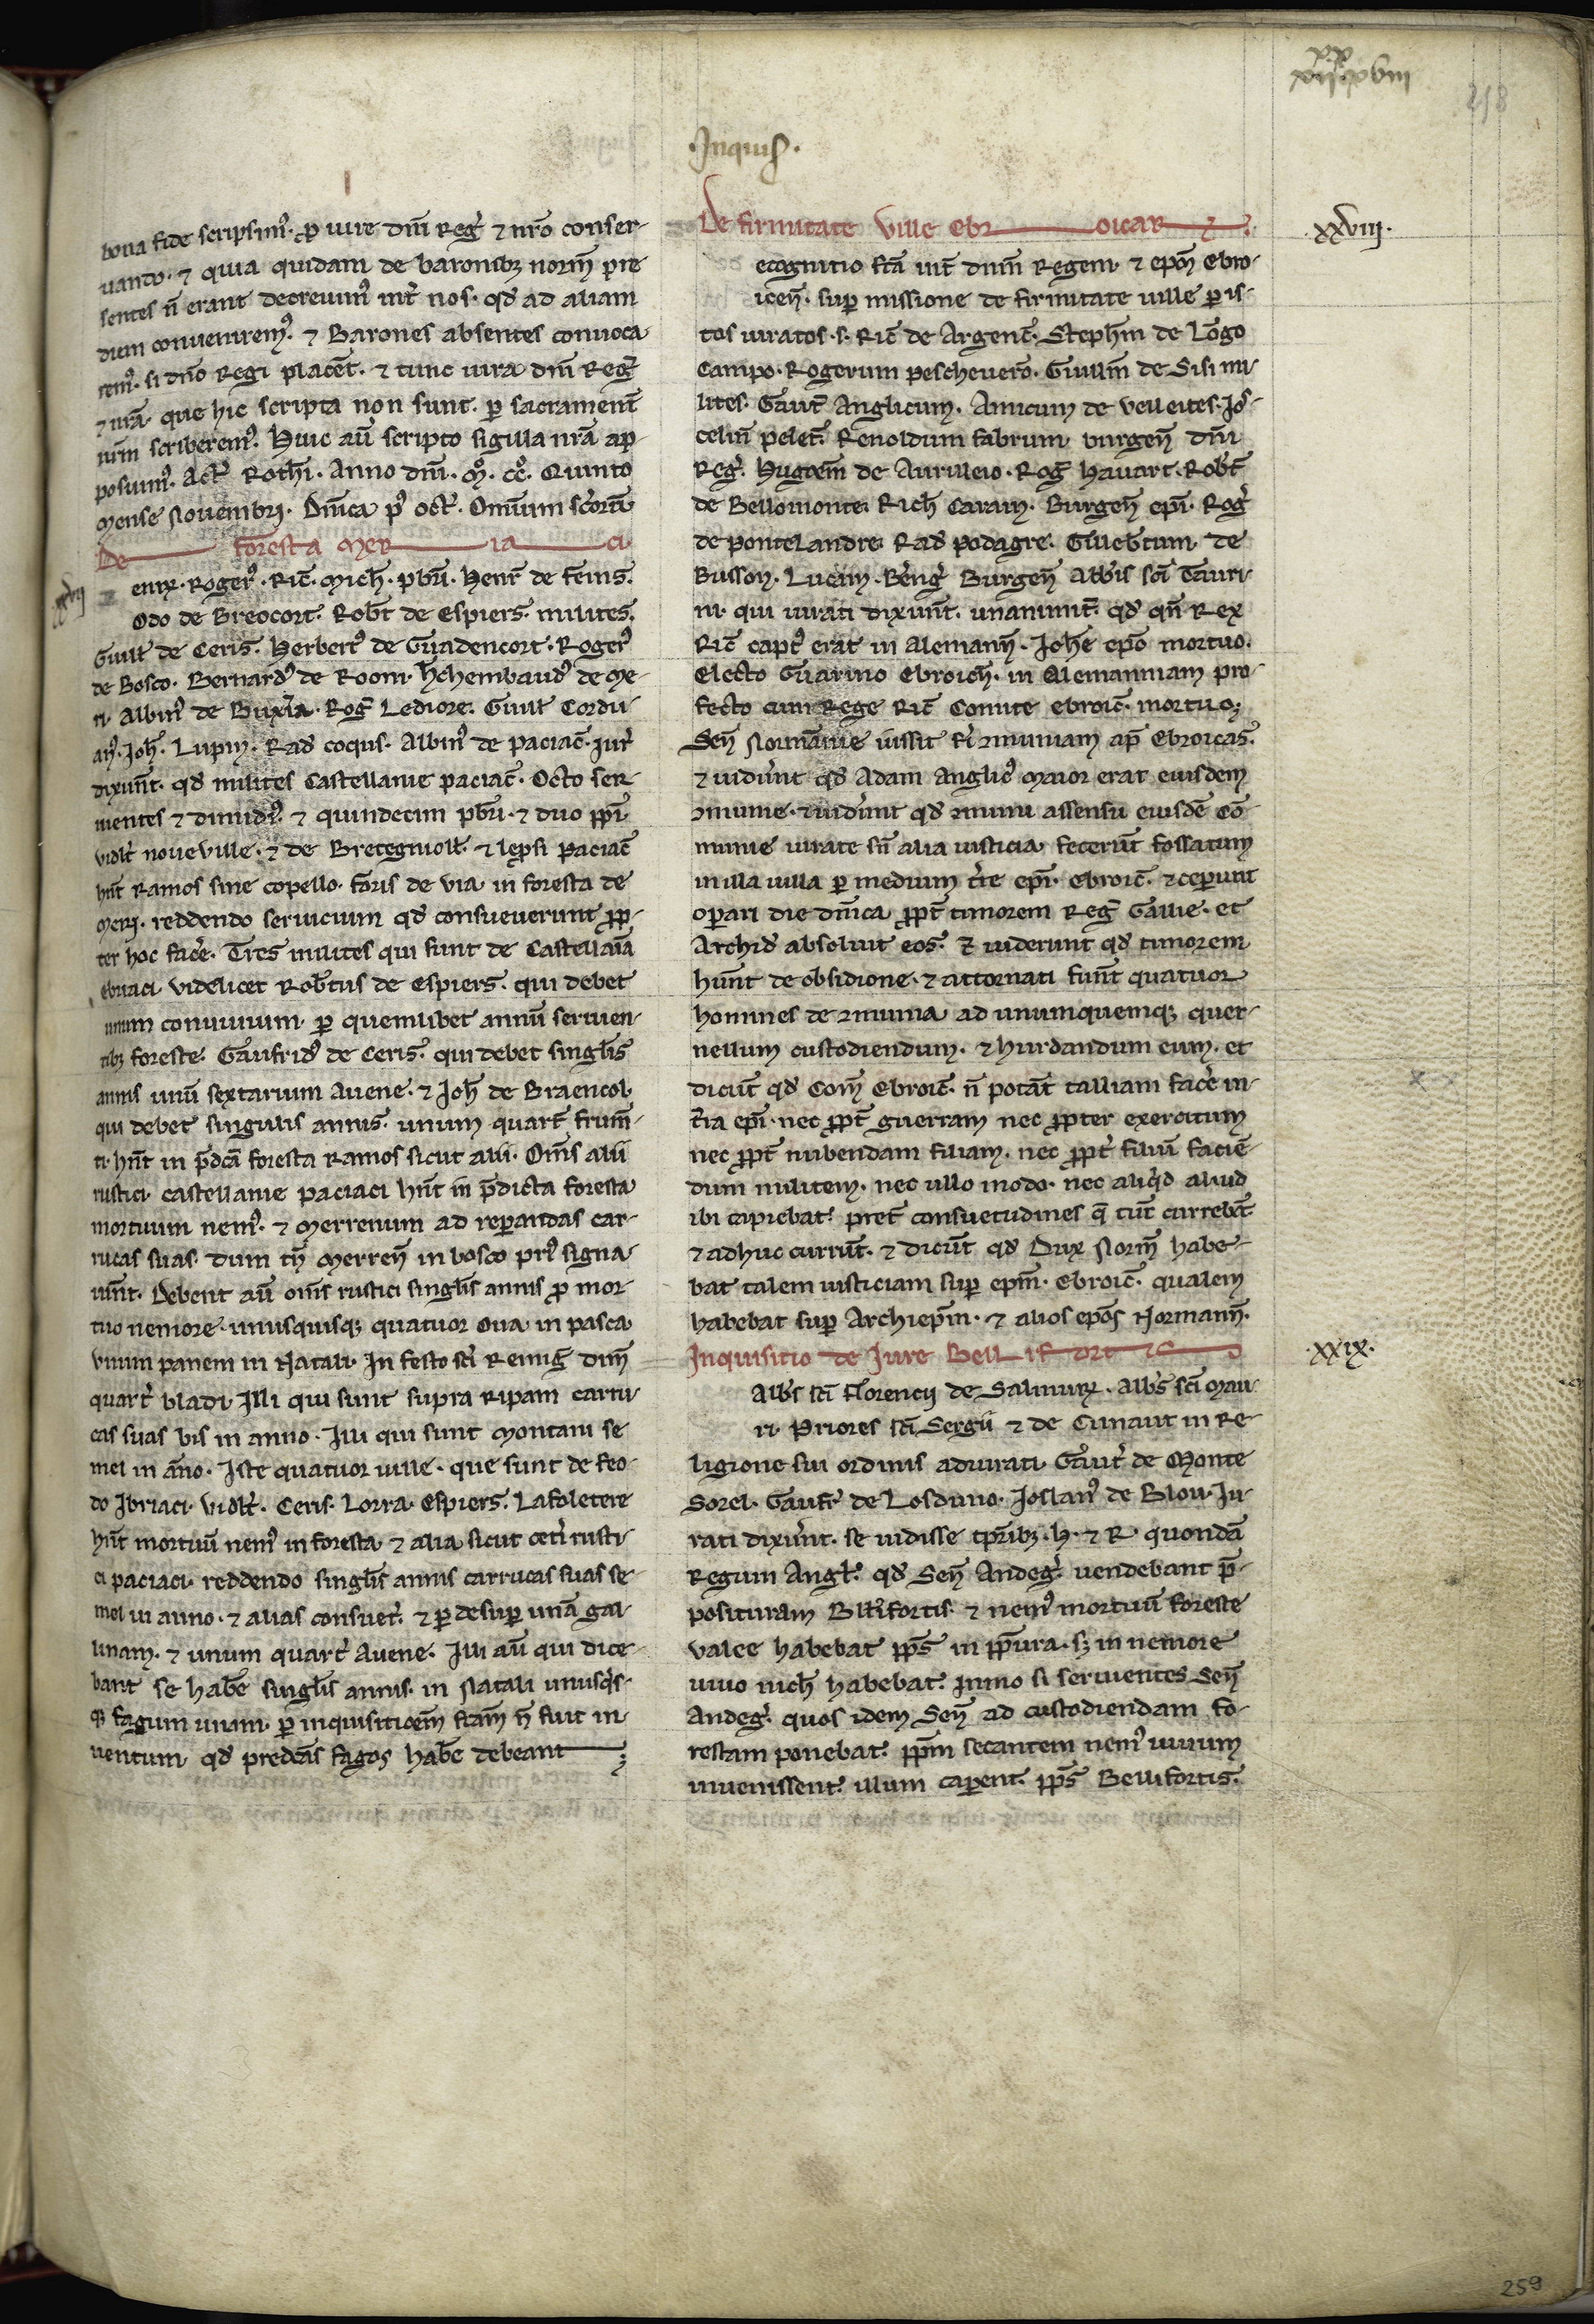 xx xx
xii. xviii
258
.Inquis.
bona fide scripsim9. ꝓ iure dn̄i Reg̃ ⁊ nr̄o conser-
uando. ⁊ quia quidam de baronibꝫ norm̃ pre-
sentes ñ erant decreuim9 int̃ nos. qđ ad aliam
diem conuenirem9. ⁊ Barones absentes conuoca-
rem9. si dño Regi placẽt. ⁊ tunc iura dn̄i Reg̃
⁊ nr̄a. que hic scripta non sunt. ꝑ sacrament̃
nr̄m scriberem9. Huic aũ scripto sigilla nr̄a ap-
posuim9. Act̃ Rothi. Anno dn̄i. m°. cc°. Quinto
Mense Nouembri. Dn̄ica p9 oct̃. Omium sc̃orũ
De foresta Mer ia ci
enr̃. Roger9. Ric̃. Mich̃. pbr̃i. Henr̃ de Fẽins.
Odo de Breocort. Rob̃t de Espiers. milites.
Guill̃t de Ceris. Herbert9 de Guadencort. Roger9
de Bosco. Bernard9 de Rooni. hchembaud9 de Me-
ri. Albin9 de Buxia. Rog̃ Lediore. Guill̃t Cordu-
an9. Joh̃. Lupin. Rad̃ coqus. Albin9 de Paciac̃. Jur̃
dixũnt. qđ milites Castellanie paciac̃. Octo ser-
uientes ⁊ dimid9. ⁊ quindecim pbr̃i. ⁊ duo pp̃i.
vidl̃t noueville. ⁊ de Bretegnioll̃. ⁊ lepsi Paciac̃
hñt Ramos sine copello. foris de via in foresta de
Merj. reddendo seruicium qđ consueuerunt ꝓp-
ter hoc fac̃e. Tres milites qui sunt de Castellãia
ebriaci videlicet Rob̃tus de Espiers. qui debet
unum conuiuium. ꝑ quemlibet annũ seruien-
tibꝫ foreste. Gaufrid9 de Ceris. qui debet singl̃is
annis unũ sextarium Auene. ⁊ Joh̃ de Braencol.
qui debet singulis annis. unum quart̃ frum̃-
ti. hñt in p̃dc̃a foresta Ramos sicut alii. Om̃s alii
rustici. castellanie paciaci hñt in p̃dicta foresta
mortuum nem9. ⁊ Merrenum ad reꝑandas car-
rucas suas. dum tñ Merreñ in bosco pri9 signa-
uñt. Debent aũ om̃s rustici singl̃is annis ꝓ mor-
tuo nemore. unusquisqꝫ quatuor oua in pasca
vnum panem in Natali. In festo sc̃i Remig̃ dim̃
quart̃ bladi. Illi qui sunt supra ripam carru-
cas suas bis in anno. Illi qui sunt Montani se-
mel in ãno. Iste quatuor uille. que sunt de feo-
do Jbriaci. vidl̃t. Ceris. Lorra. Espiers. Lafoletere
hñt mortuũ nem9 in foresta. ⁊ alia sicut cet̃i rusti-
ci paciaci. reddendo singl̃is annis carrucas suas se-
mel in anno. ⁊ alias consuet̃. ⁊ ꝑ desuꝑ unã gal-
linam. ⁊ unum quart̃ Auene. Illi aũ qui dice-
bant se hab̃e singl̃is annis. in Natali unusq̃s-
qꝫ fagum unam. ꝑ inquisitioẽm fc̃am ñ fuit in-
uentum. qđ predc̃as fagos hab̃e debeant
De firmitate Ville ebr oicar ⁊
xxviij.
ecognitio fc̃a int̃ dñm Regem. ⁊ epm̃ Ebro-
iceñ. suꝑ missione de firmitate uille ꝑ is-
tos iuratos. s. Ric̃ de Argenc̃. Steph̃m de Lõgo
Campo. Rogerum Pescheuerõ. Guill̃m de Sisi mi-
lites. Gaut̃ Anglicum. Amicum de velleites. Jos-
celiñ Pelet̃. Renoldum fabrum. burgeñ dn̄i
Reg̃. Hugoem̃ de Aurilleio. Rog̃ Hauart. Rob̃t
de Bellomonte. Rich̃ Caram. Burgeñ ep̃i. Rog̃
de pontelandre. Rad̃ podagre. Gilleb̃tum. de
Busson. Lucam. Bẽng̃ Burgeñ Abb̃is sc̃i Tauri-
ni. qui iurati dixũnt. unanimit̃. qđ qñ Rex
Ric̃ capt9 erat in Alemañ. Joh̃e epõ mortuo.
Electo Guarino Ebroicñ. in Alemanniam pro-
fecto cum Rege Ric̃ Comite ebroic̃. mortuo;
Señ Normãnie iussit fi̇ri ɔmuniam ap̃ Ebroicas.
⁊ uidẽnt qđ Adam Anglic9 Maior erat eiusdem
ɔmunie. ⁊ uidẽnt qđ ɔmuni assensu eiusdẽ Cõ-
munie iurate sñ alia iusticia fecerũt fossatum
in illa uilla ꝑ medium t̃re ep̃i. Ebroic̃. ⁊ ceꝑunt
oꝑari die dñica ꝓpt̃ timorem Reg̃ Gallie. et
Archid̃ absoluit eos. Et uiderunt qđ timorem
hũnt de obsidione. ⁊ attornati fũnt quatuor
homines de ɔmunia ad unumquemqꝫ quer-
nellum custodiendum. ⁊ hurdandum eum. et
diciũt qđ Com̃ Ebroic̃. ñ potãt talliam fac̃e in
t̃ra ep̃i. nec ꝓpt̃ guerram nec ꝓpter exercitum
nec ꝓpt̃ nubendam filiam. nec ꝓpt̃ filiũ faciẽ-
dum militem. nec ullo modo. nec aliq̃d aliud
ibi capiebat. pret̃ consuetudines q̃ tũc currebãt
⁊ adhuc currũt. ⁊ dicũt qđ Dux Norm̃ habe-
bat talem iusticiam suꝑ epm̃. Ebroic̃. qualem
habebat suꝑ Archiepm̃. ⁊ alios epõs Normañ.
Inquisitio de Jure Bell if ort ic
.xxix.
Abb̃s sc̃i Florencij de Salmurᷓ. Abb̃s sc̃i Mau-
ri. Priores sc̃i Sergii ⁊ de Cunaut in re-
ligione sui ordinis adiurati. Gaut̃ de Monte
Sorel. Gaufr̃ de Losduno. Joslan9 de Blou. Ju-
rati dixũnt. se uidisse tp̃ribꝫ. h. ⁊ R. quondã
Regum Angl̃. qđ Señ Andeg̃ uendebant p̃-
posituram Bll̃ifortis. ⁊ nem9 mortuũ foreste
valee habebat pp̃s in pp̃ura. sꝫ in nemore
uiuo nich̃ habebat. Immo si seruientes Señ
Andeg̃. quos idem Señ ad custodiendam fo-
restam ponebat. pp̃m secantem nem9 uiuum
inuenissent. illum caꝑent. pp̃s Bellifortis.
259